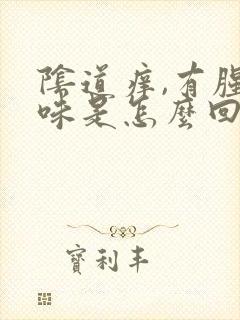 陰道痒,有腥
味是怎麼回
寶利丰